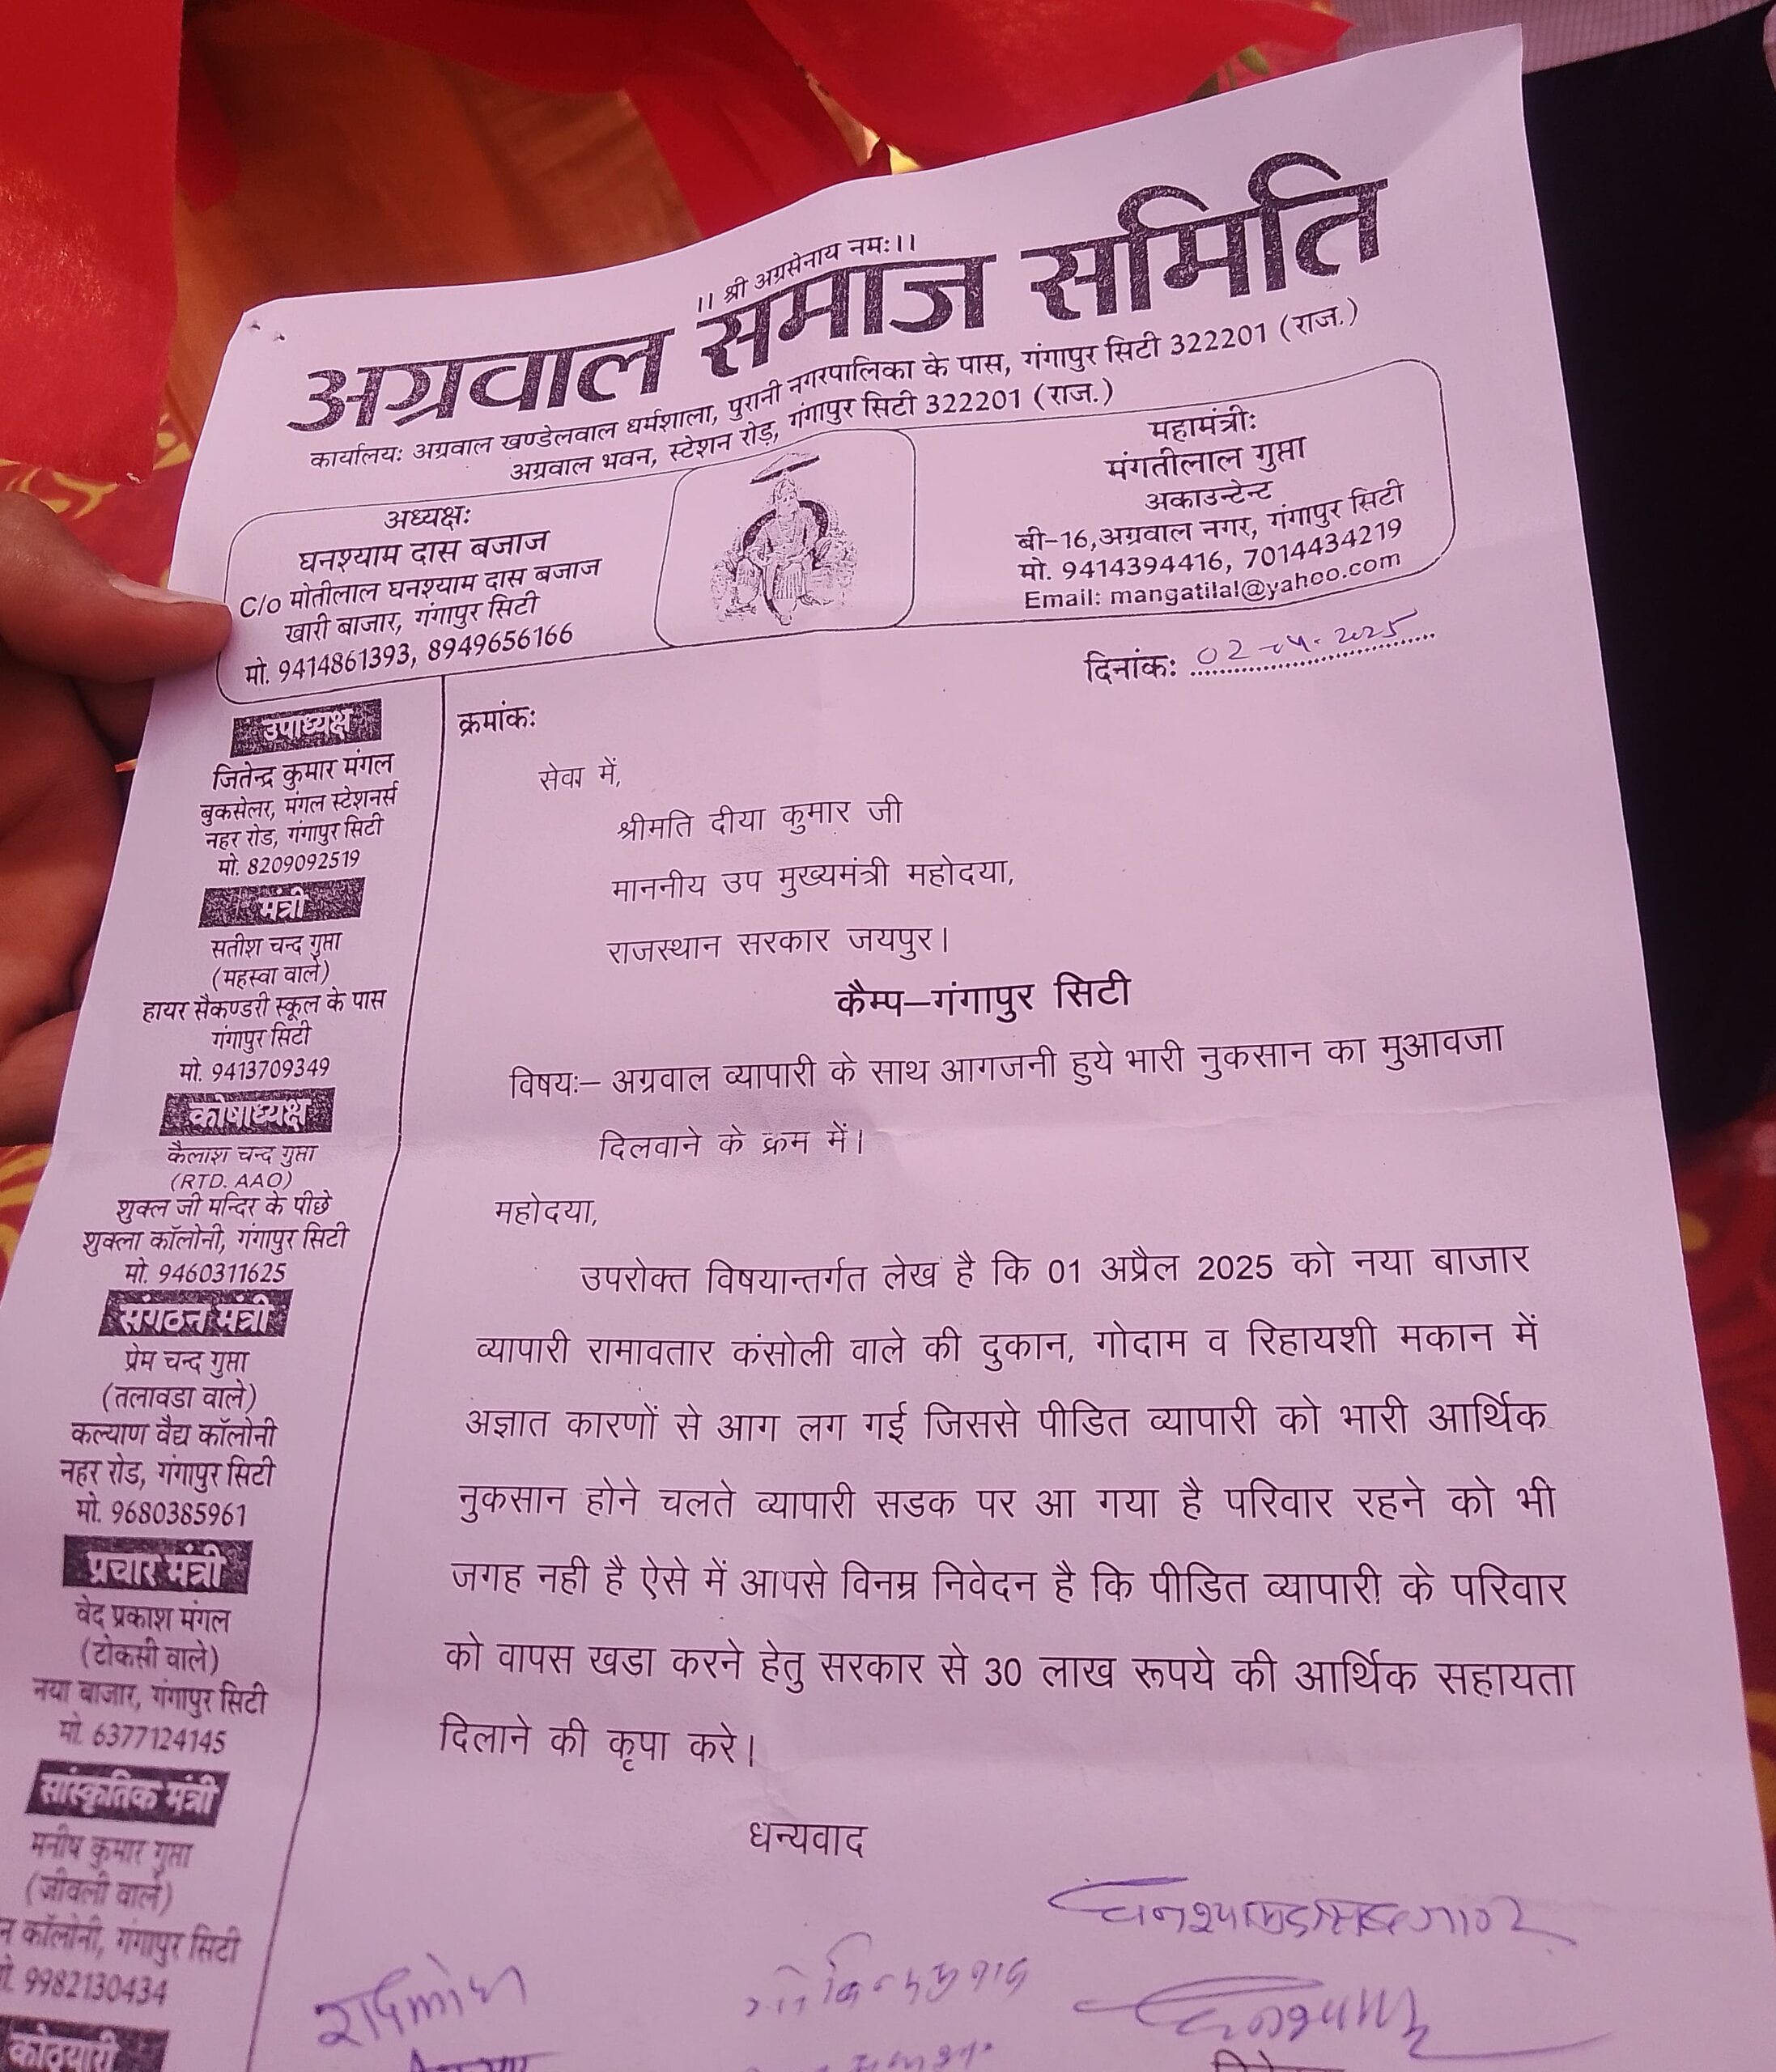 ।। श्री अग्रसेनाय नमः।।
अग्रवाल समाज समिति
कार्यालयः अग्रवाल खण्डेलवाल धर्मशाला, पुरानी नगरपालिका के पास, गंगापुर सिटी 322201 (राज.)
अग्रवाल भवन, स्टेशन रोड़, गंगापुर सिटी 322201 (राज.)
अध्यक्षः
घनश्याम दास बजाज
C/o मोतीलाल घनश्याम दास बजाज
खारी बाजार, गंगापुर सिटी
मो. 9414861393, 8949656166
महामंत्रीः
मंगतीलाल गुप्ता
अकाउन्टेन्ट
बी-16,अग्रवाल नगर, गंगापुर सिटी
मो. 9414394416, 7014434219
Email: mangatilal@yahoo.com
दिनांकः 02-04-2025
उपाध्यक्ष
जितेन्द्र कुमार मंगल
बुकसेलर, मंगल स्टेशनर्स
नहर रोड, गंगापुर सिटी
मो. 8209092519
मंत्री
सतीश चन्द गुप्ता
(महस्वा वाले)
हायर सैकण्डरी स्कूल के पास
गंगापुर सिटी
मो. 9413709349
कोषाध्यक्ष
कैलाश चन्द गुप्ता
(RTD. AAO)
शुक्ल जी मन्दिर के पीछे
शुक्ला कॉलोनी, गंगापुर सिटी
मो. 9460311625
संगठन मंत्री
प्रेम चन्द गुप्ता
(तलावडा वाले)
कल्याण वैद्य कॉलोनी
नहर रोड, गंगापुर सिटी
मो. 9680385961
प्रचार मंत्री
वेद प्रकाश मंगल
(टोकसी वाले)
नया बाजार, गंगापुर सिटी
मो. 6377124145
सांस्कृतिक मंत्री
मनीष कुमार गुप्ता
(जीवली वाले)
न कॉलोनी, गंगापुर सिटी
मो. 9982130434
कोठयारी
क्रमांकः
सेवा में,
श्रीमति दीया कुमार जी
माननीय उप मुख्यमंत्री महोदया,
राजस्थान सरकार जयपुर।
कैम्प–गंगापुर सिटी
विषयः– अग्रवाल व्यापारी के साथ आगजनी हुये भारी नुकसान का मुआवजा
दिलवाने के क्रम में।
महोदया,
उपरोक्त विषयान्तर्गत लेख है कि 01 अप्रैल 2025 को नया बाजार
व्यापारी रामावतार कंसोली वाले की दुकान, गोदाम व रिहायशी मकान में
अज्ञात कारणों से आग लग गई जिससे पीडित व्यापारी को भारी आर्थिक
नुकसान होने चलते व्यापारी सडक पर आ गया है परिवार रहने को भी
जगह नही है ऐसे में आपसे विनम्र निवेदन है कि पीडित व्यापारी के परिवार
को वापस खडा करने हेतु सरकार से 30 लाख रूपये की आर्थिक सहायता
दिलाने की कृपा करे।
धन्यवाद